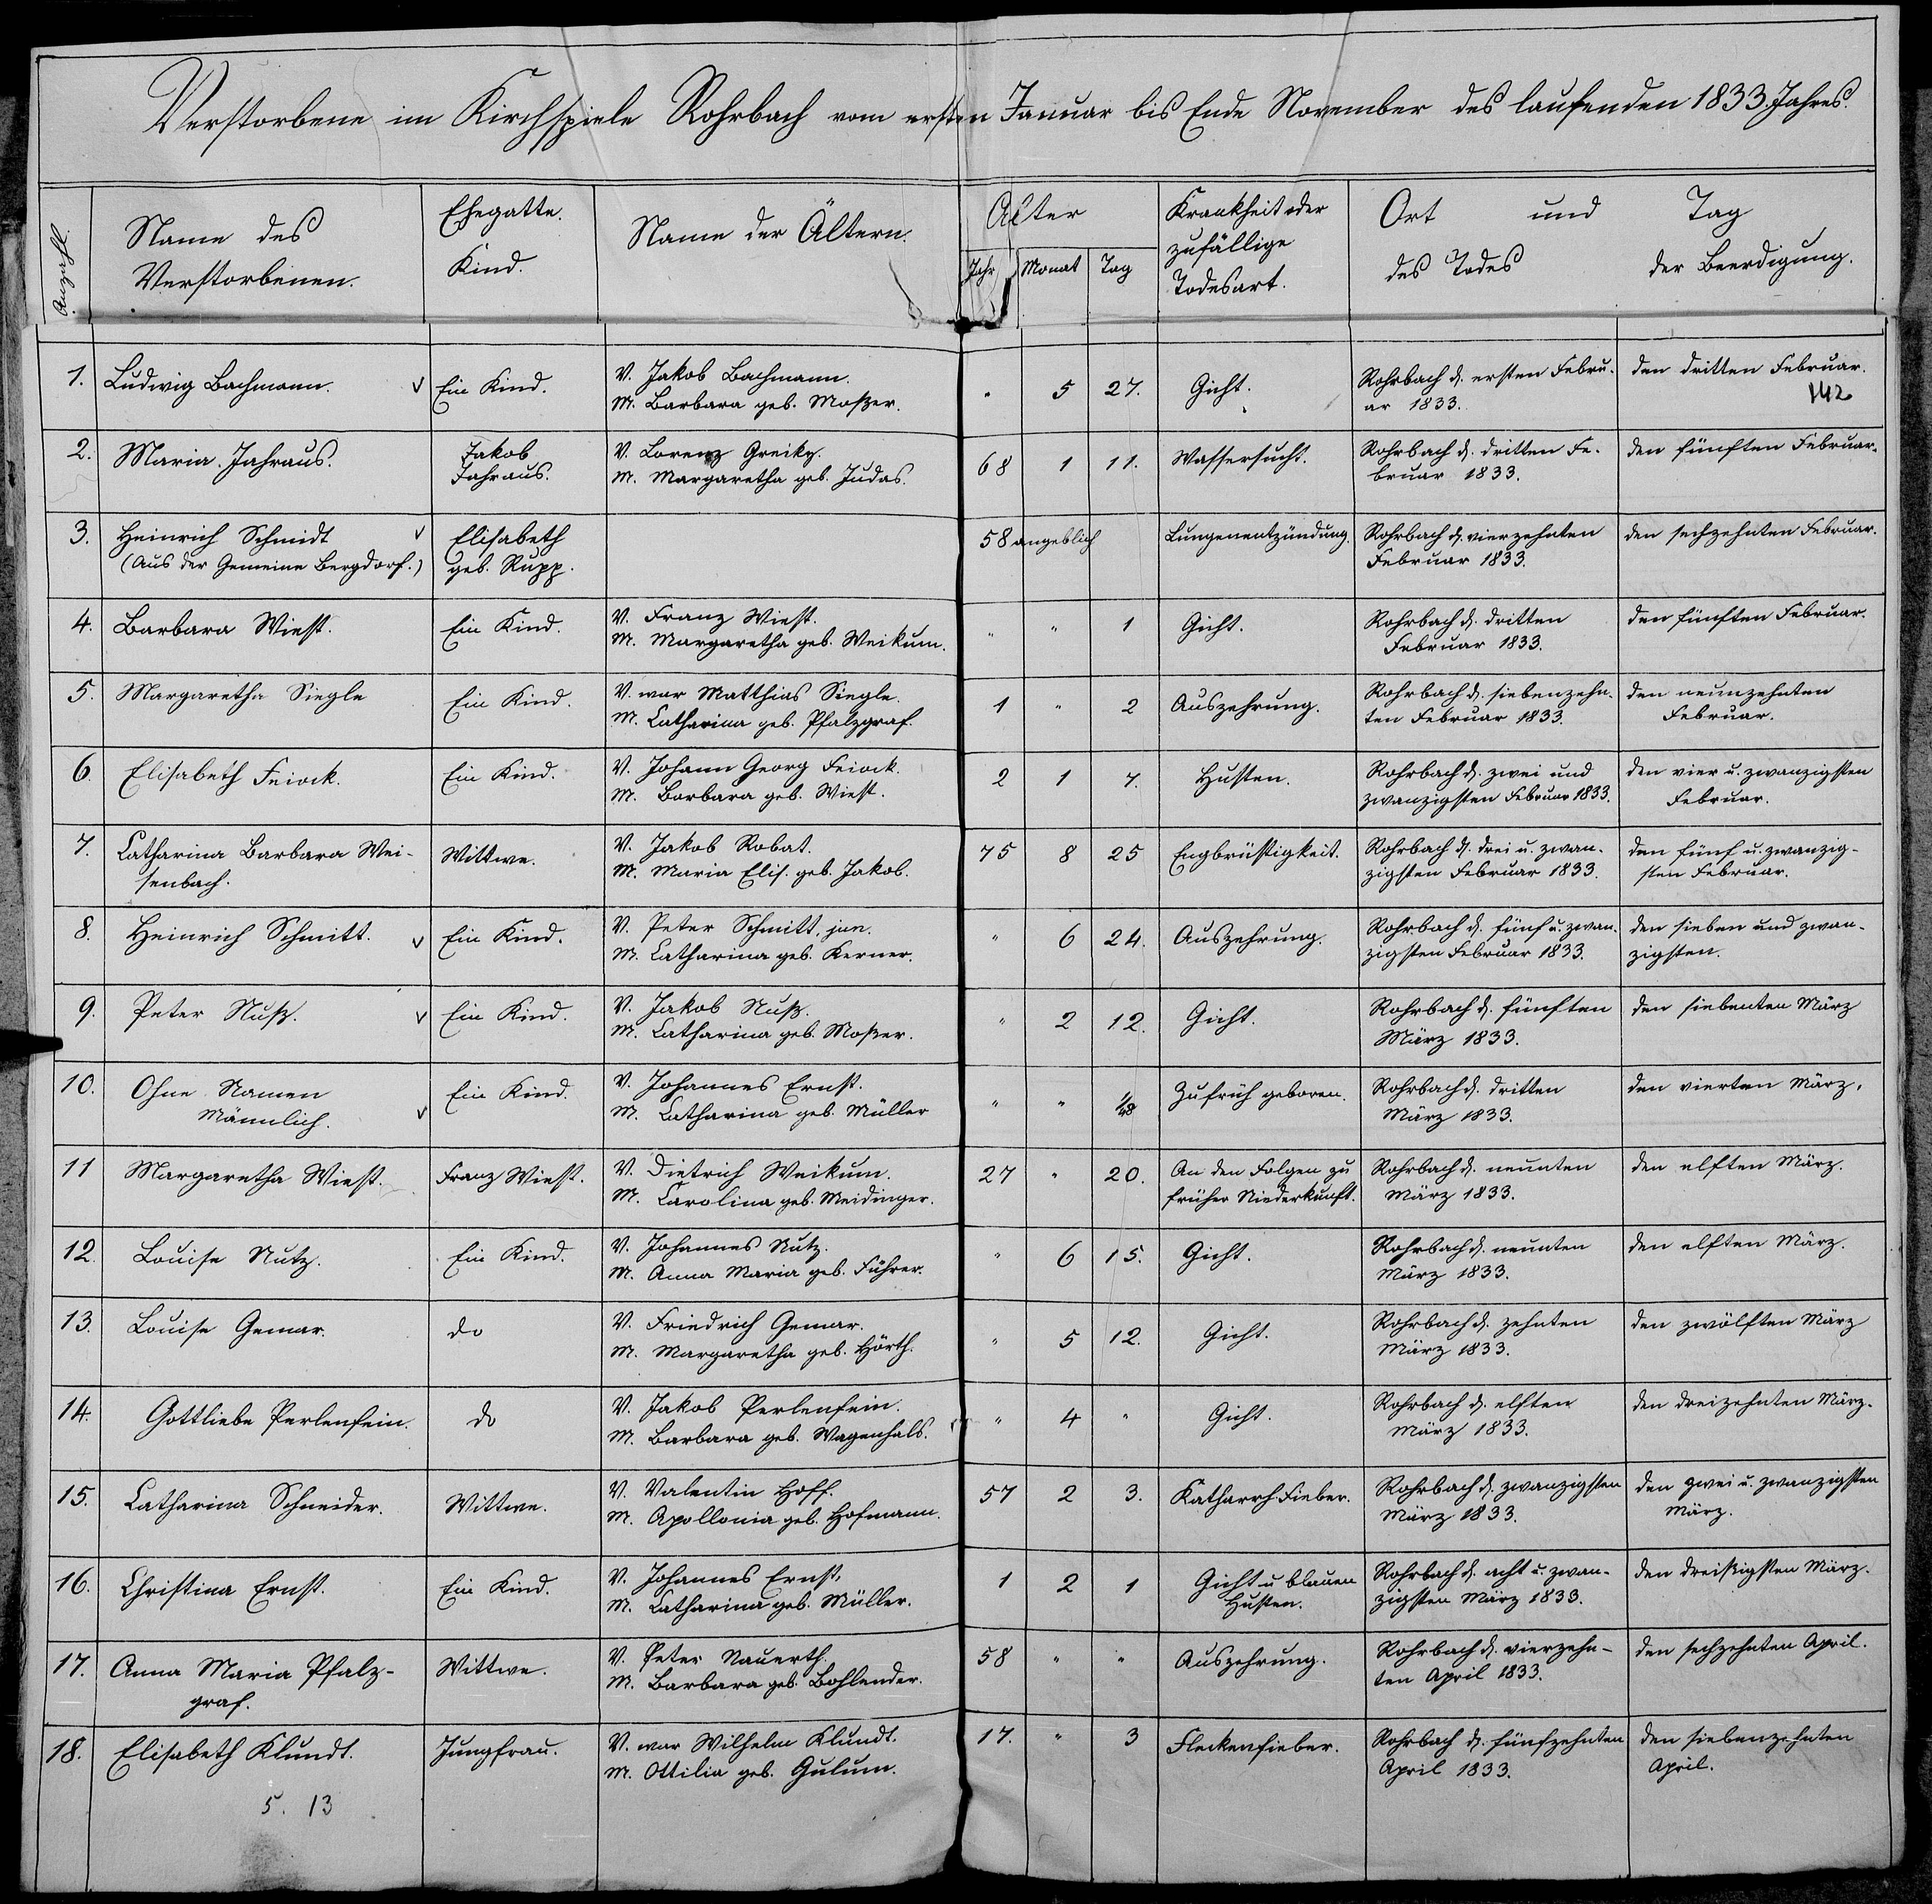 Verstorbene im Kirchspiele Rohrbach vom ersten Januar bis Ende November des laufenden 1833. Jahres.
Anzahl. Name des Verstorbenen. Ehegatte. Kind. Name der Ältern. Alter Jahr Monat Tag Krankheit oder zufällige Todesart. Ort und Tag des Todes der Beerdigung.
1. Ludwig Bachmann. v Ein Kind. V. Jakob Bachmann. " 5 27. Gicht. Rohrbach d. ersten Febru- den dritten Februar.
M. Barbara geb. Moßer. ar 1833. 142
2. Maria Jahraus. Jakob V. Lorenz Greiky. 68 1 11. Wassersucht. Rohrbach d. dritten Fe- den fünften Februar.
Jahraus. M. Margaretha geb. Judas. bruar 1833.
3. Heinrich Schmidt v Elisabeth 58 angeblich Lungenentzündung. Rohrbach d. vierzehnten den sechzehnten Februar.
(Aus der Gemeine Bergdorf.) geb. Rupp. Februar 1833.
4. Barbara Wiest. Ein Kind. V. Franz Wiest. " " 1 Gicht. Rohrbach d. dritten den fünften Februar.
M. Margaretha geb. Weikum. Februar 1833.
5. Margaretha Siegle Ein Kind. V. war Matthias Siegle. 1 " 2 Auszehrung. Rohrbach d. siebenzehn- den neunzehnten
M. Catharina geb. Pfalzgraf. ten Februar 1833. Februar.
6. Elisabeth Feiock. Ein Kind. V. Johann Georg Feiock. 2 1 7. Husten. Rohrbach d. zwei und den vier u. zwanzigsten
M. Barbara geb. Wiest. zwanzigsten Februar 1833. Februar.
7. Catharina Barbara Wei- Wittwe. V. Jakob Robat. 75 8 25 Engbrüstigkeit. Rohrbach d. drei u. zwan- den fünf u. zwanzig-
senbach. M. Maria Elis. geb. Jakob. zigsten Februar 1833. sten Februar.
8. Heinrich Schmitt. v Ein Kind. V. Peter Schmitt, jun. " 6 24. Auszehrung. Rohrbach d. fünf u. zwan- den sieben und zwan-
M. Catharina geb. Kerner. zigsten Februar 1833. zigsten.
9. Peter Nuß. v Ein Kind. V. Jakob Nuß. " 2 12. Gicht. Rohrbach d. fünften den siebenten März
M. Catharina geb. Moßer. März 1833.
10. Ohne Namen Ein Kind. V. Johannes Ernst. " " 1/48 Zu früh geboren. Rohrbach d. dritten den vierten März.
Männlich. v M. Catharina geb. Müller März 1833.
11 Margaretha Wiest. Franz Wiest. V. Dietrich Weikum. 27 " 20. An den Folgen zu Rohrbach d. neunten den elften März.
M. Carolina geb. Meidinger. früher Niederkunft. März 1833.
12. Louise Nutz. Ein Kind. V. Johannes Nutz. " 6 15. Gicht. Rohrbach d. neunten den elften März.
M. Anna Maria geb. Führer. März 1833.
13. Louise Gemar. do V. Friedrich Gemar. " 5 12. Gicht. Rohrbach d. zehnten den zwölften März
M. Margaretha geb. Hörth. März 1833.
14. Gottliebe Perlenfein. do V. Jakob Perlenfein. " 4 " Gicht. Rohrbach d. elften den dreizehnten März.
M. Barbara geb. Wagenhals. März 1833.
15. Catharina Schneider. Wittwe. V. Valentin Hoff. 57 2 3. Katharrh. Fieber. Rohrbach d. zwanzigsten den zwei u. zwanzigsten
M. Apollonia geb. Hofmann. März 1833. März.
16. Christina Ernst. Ein Kind. V. Johannes Ernst. 1 2 1 Gicht u blauen Rohrbach d. acht u. zwan- den dreißigsten März.
M. Catharina geb. Müller. Husten. zigsten März 1833.
17. Anna Maria Pfalz- Wittwe. V. Peter Nauerth. 58 " " Auszehrung. Rohrbach d. vierzehn- den sechzehnten April.
graf. M. Barbara geb. Bohlender. ten April 1833.
18. Elisabeth Klundt. Jungfrau. V. war Wilhelm Klundt. 17. " 3 Fleckenfieber. Rohrbach d. fünfzehnten den siebenzehnten
M. Ottilia geb. Gulum. April 1833. April.
5. 13